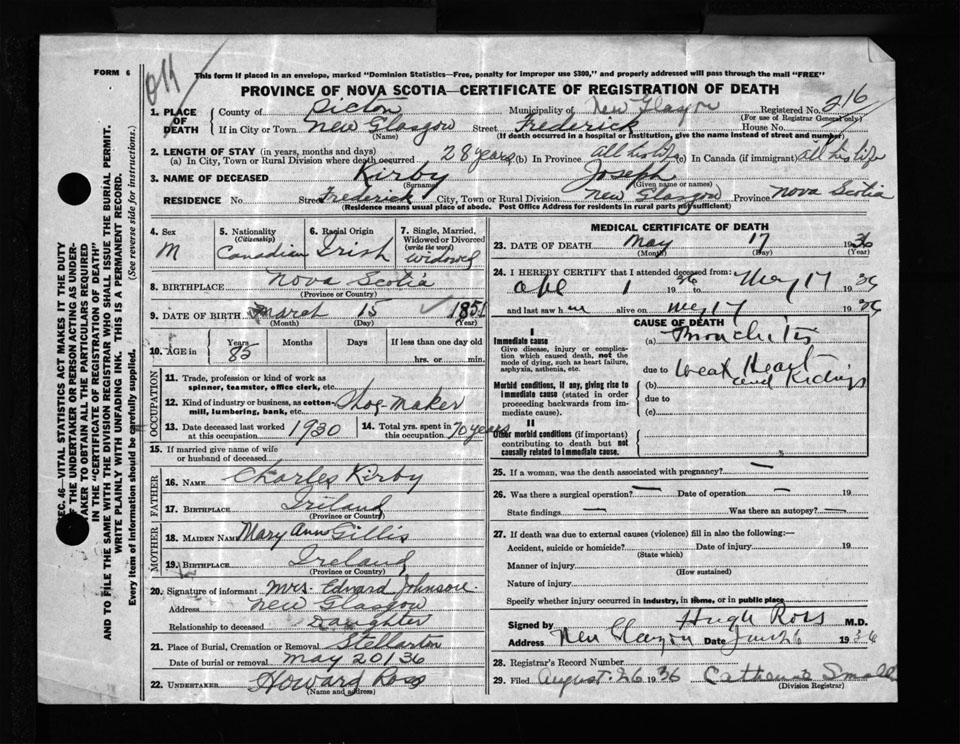 FORM 6
This form if placed in an envelope, marked "Dominion Statistics—Free, penalty for improper use $300," and properly addressed will pass through the mail "FREE"
PROVINCE OF NOVA SCOTIA—CERTIFICATE OF REGISTRATION OF DEATH
1. PLACE OF DEATH
County of Pictou Municipality of New Glasgow Registered No. 216
(For use of Registrar General only)
If in City or Town New Glasgow Street Frederick House No.
(Name) (If death occurred in a hospital or institution, give the name instead of street and number)
2. LENGTH OF STAY (in years, months and days)
(a) In City, Town or Rural Division where death occurred 28 years (b) In Province all his life (c) In Canada (if immigrant) all his life
3. NAME OF DECEASED Kirby Joseph
(Surname) (Given name or names)
RESIDENCE No. Street Frederick City, Town or Rural Division New Glasgow Province Nova Scotia
(Residence means usual place of abode. Post Office Address for residents in rural parts not sufficient)
4. Sex
M
5. Nationality
(Citizenship)
Canadian
6. Racial Origin
Irish
7. Single, Married, Widowed or Divorced
(write the word)
Widowed
8. BIRTHPLACE Nova Scotia
(Province or Country)
9. DATE OF BIRTH March 15 1851
(Month) (Day) (Year)
10. AGE in
Years Months Days If less than one day old
85 hrs. or min.
OCCUPATION
11. Trade, profession or kind of work as
spinner, teamster, office clerk, etc.
12. Kind of industry or business, as cotton-
mill, lumbering, bank, etc. Shoe-maker
13. Date deceased last worked
at this occupation 1930
14. Total yrs. spent in
this occupation 70 years
15. If married give name of wife
or husband of deceased
FATHER
16. NAME Charles Kirby
17. BIRTHPLACE Irland
(Province or Country)
MOTHER
18. MAIDEN NAME Mary Ann Gillis
19. BIRTHPLACE Ireland
(Province or Country)
20. Signature of informant Mrs. Edward Johnson
Address New Glasgow
Relationship to deceased Daughter
21. Place of Burial, Cremation or Removal Stellarton
Date of burial or removal May 20/36
22. UNDERTAKER Howard Ross
(Name and address)
MEDICAL CERTIFICATE OF DEATH
23. DATE OF DEATH May 17 1936
(Month) (Day) (Year)
24. I HEREBY CERTIFY that I attended deceased from:
1 1936 to May 17 1936
and last saw h alive on May 17 1936
CAUSE OF DEATH
I
Immediate cause
Give disease, injury or complica-
tion which caused death, not the
mode of dying, such as heart failure,
asphyxia, asthenia, etc.
(a) Bronchitis
due to Weak Heart
Morbid conditions, if any, giving rise to
immediate cause (stated in order
proceeding backwards from im-
mediate cause).
(b) and Kidneys
due to
(c)
II
Other morbid conditions (if important)
contributing to death but not
causally related to immediate cause.
25. If a woman, was the death associated with pregnancy? —
26. Was there a surgical operation? — Date of operation — 19
State findings — Was there an autopsy? —
27. If death was due to external causes (violence) fill in also the following:—
Accident, suicide or homicide? Date of injury 19
(State which)
Manner of injury
(How sustained)
Nature of injury
Specify whether injury occurred in industry, in home, or in public place
Signed by Hugh Ross M.D.
Address New Glasgow Date 26 1936
28. Registrar's Record Number
29. Filed August 26 1936 Catherine Small
(Division Registrar)
SEC. 46—VITAL STATISTICS ACT MAKES IT THE DUTY
OF THE UNDERTAKER OR PERSON ACTING AS UNDER-
TAKER TO OBTAIN ALL THE PARTICULARS REQUIRED
IN THE "CERTIFICATE OF REGISTRATION OF DEATH"
AND TO FILE THE SAME WITH THE DIVISION REGISTRAR WHO SHALL ISSUE THE BURIAL PERMIT.
WRITE PLAINLY WITH UNFADING INK. THIS IS A PERMANENT RECORD.
Every item of information should be carefully supplied. (See reverse side for instructions.)